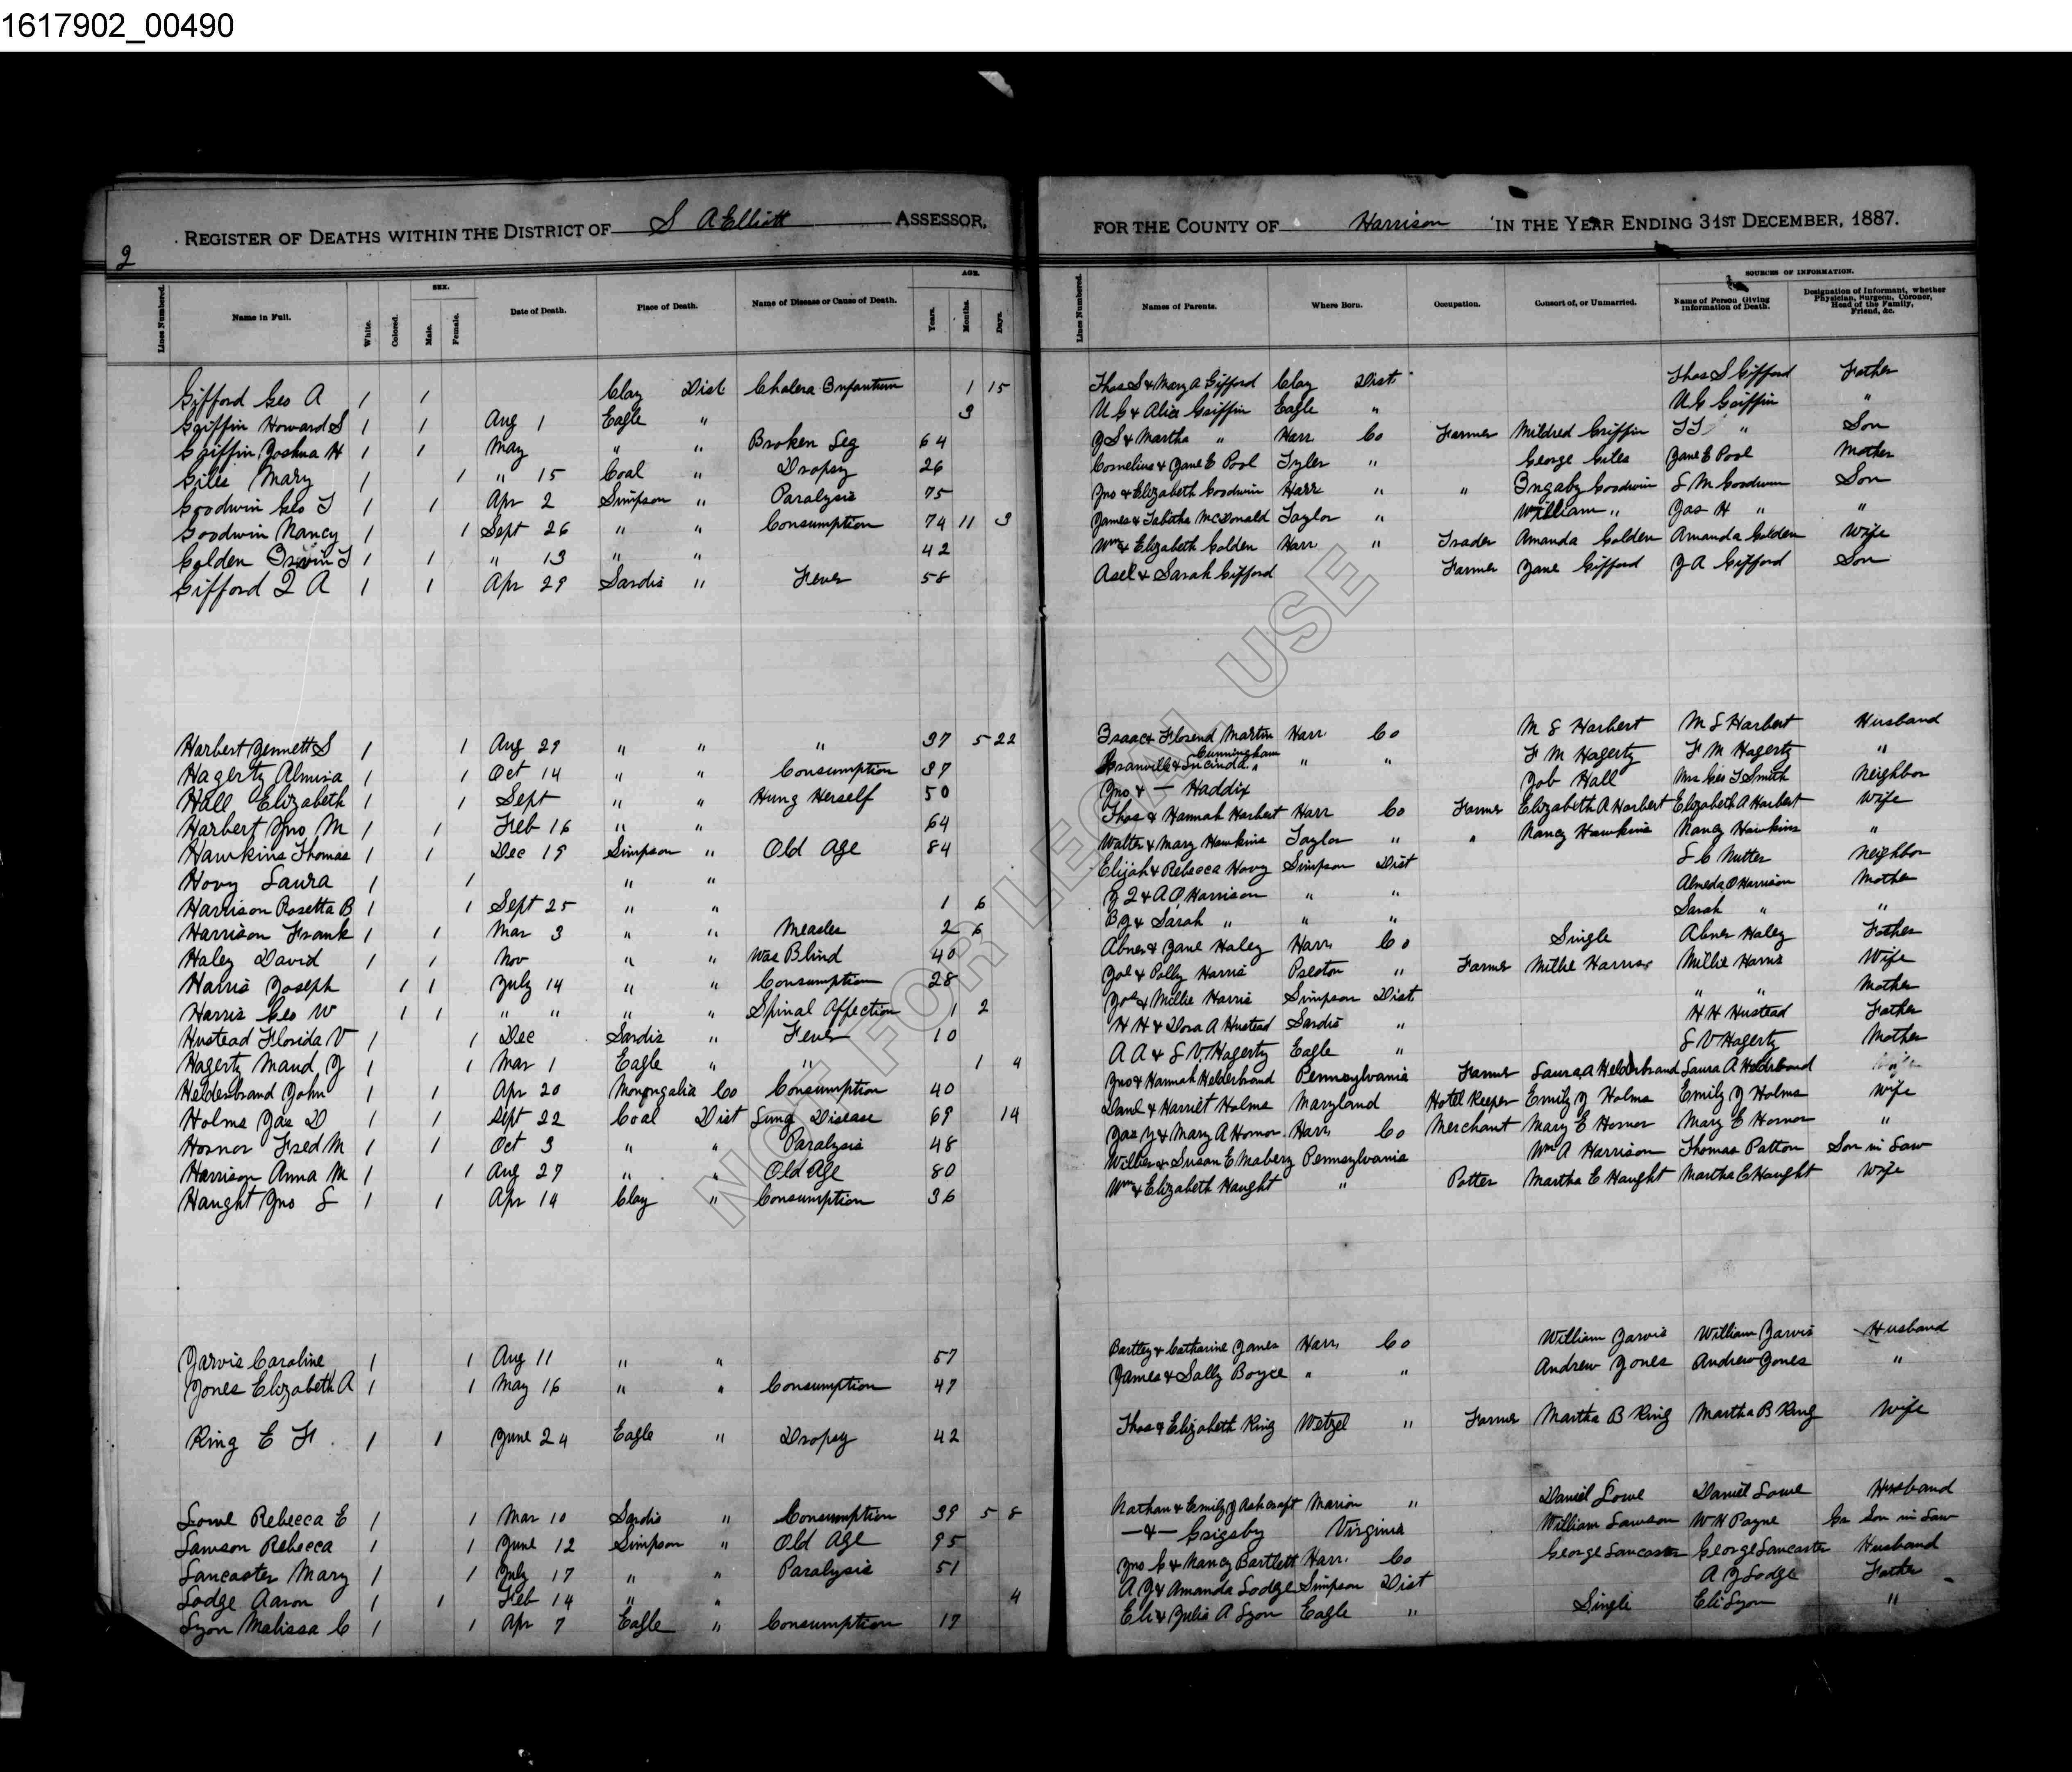 1617902_00490
2
REGISTER OF DEATHS WITHIN THE DISTRICT OF S A Elliott ASSESSOR, FOR THE COUNTY OF Harrison IN THE YEAR ENDING 31ST DECEMBER, 1887.
Lines Numbered. Name in Full. White. Colored. SEX. Male. Female. Date of Death. Place of Death. Name of Disease or Cause of Death. AGE. Years. Months. Days. Lines Numbered. Names of Parents. Where Born. Occupation. Consort of, or Unmarried. SOURCES OF INFORMATION. Name of Person Giving Information of Death. Designation of Informant, whether Physician, Surgeon, Coroner, Head of the Family, Friend, &c.
Gifford Geo A 1 1 Clay Dist Cholera Infantum 1 15 Thos S & Mary A Gifford Clay Dist Thos S Gifford Father
Griffin Howard S 1 1 Aug 1 Eagle " 3 U G & Alia Griffin Eagle " U G Griffin "
Griffin Joshua H 1 1 May " " Broken Leg 64 J S & Martha " Harr Co Farmer Mildred Griffin " Son
Giles Mary 1 1 " 15 Coal " Dropsy 26 Cornelius & Jane E Pool Tyler " George Giles Jane E Pool Mother
Goodwin Geo T 1 1 Apr 2 Simpson " Paralysis 75 Jno & Elizabeth Goodwin Harr " " Ingaby Goodwin S M Goodwin Son
Goodwin Nancy 1 1 Sept 26 " " Consumption 74 11 3 James & Tabitha McDonald Taylor " William " Jas H " "
Golden Irwin T 1 1 " 13 " " 42 Wm & Elizabeth Golden Harr " Trader Amanda Golden Amanda Golden Wife
Gifford J A 1 1 Apr 29 Sardis " Fever 58 Asel & Sarah Gifford Farmer Jane Gifford J A Gifford Son
Harbert Jennett S 1 1 Aug 29 " " " 37 5 22 Isaac & Florend Martin Harr Co M S Harbert M S Harbert Husband
Hagerty Almira 1 1 Oct 14 " " Consumption 37 Granville & Lucinda Cunningham " " F M Hagerty F M Hagerty "
Hall Elizabeth 1 1 Sept " " Hung Herself 50 Jno & — Haddix Job Hall Mrs Geo T Smith Neighbor
Harbert Jno M 1 1 Feb 16 " " 64 Thos & Hannah Harbert Harr Co Farmer Elizabeth A Harbert Elizabeth A Harbert Wife
Hawkins Thomas 1 1 Dec 19 Simpson " Old Age 84 Walter & Mary Hawkins Taylor " " Nancy Hawkins Nancy Hawkins "
Hovy Laura 1 1 " " Elijah & Rebecca Hovy Simpson Dist L C Nutter Neighbor
Harrison Rosetta B 1 1 Sept 25 " " 1 6 J & A O Harrison " " Almeda O Harrison Mother
Harrison Frank 1 1 Mar 3 " " Measles 2 6 B J & Sarah " " " Sarah " "
Haley David 1 1 Nov " " Was Blind 40 Abner & Jane Haley Harr Co Single Abner Haley Father
Harris Joseph 1 1 July 14 " " Consumption 28 Joe & Polly Harris Preston " Farmer Millie Harris Millie Harris Wife
Harris Geo W 1 1 " " " " Spinal Affection 1 2 Joe & Millie Harris Simpson Dist " " Mother
Hustead Florida V 1 1 Dec Sardis " Fever 10 H H & Dora A Hustead Sardis " H H Hustead Father
Hagerty Maud J 1 1 Mar 1 Eagle " " 1 4 A A & S V Hagerty Eagle " S V Hagerty Mother
Helderbrand John 1 1 Apr 20 Monongalia Co Consumption 40 Jno & Hannah Helderbrand Pennsylvania Farmer Laura A Helderbrand Laura A Helderbrand Wife
Holms Jas D 1 1 Sept 22 Coal Dist Lung Disease 69 14 Danl & Harriet Holms Maryland Hotel Keeper Emily J Holms Emily J Holms Wife
Hornor Fred M 1 1 Oct 3 " " Paralysis 48 Jas Y & Mary A Hornor Harr Co Merchant Mary E Hornor Mary E Hornor "
Harrison Anna M 1 1 Aug 27 " " Old Age 80 & Susan E Mabery Pennsylvania Wm A Harrison Thomas Patton Son in Law
Haught Jno S 1 1 Apr 14 Clay " Consumption 36 Wm & Elizabeth Haught " Potter Martha E Haught Martha E Haught Wife
Jarvis Caroline 1 1 Aug 11 " " 57 Bartley & Catharine James Harr Co William Jarvis William Jarvis Husband
Jones Elizabeth A 1 1 May 16 " " Consumption 47 James & Sally Boyce " " Andrew Jones Andrew Jones "
King E F 1 1 June 24 Eagle " Dropsy 42 Thos & Elizabeth King Wetzel " Farmer Martha B King Martha B King Wife
Lowe Rebecca E 1 1 Mar 10 Sardis " Consumption 39 5 8 Nathan & Emily J Ashcraft Marion " Daniel Lowe Daniel Lowe Husband
Lawson Rebecca 1 1 June 12 Simpson " Old Age 95 — & — Grigsby Virginia William Lawson W H Payne Gr Son in Law
Lancaster Mary 1 1 July 17 " " Paralysis 51 Jno G & Nancy Bartlett Harr Co George Lancaster George Lancaster Husband
Lodge Aaron 1 1 Feb 14 " " 4 A J & Amanda Lodge Simpson Dist A J Lodge Father
Lyon Malissa C 1 1 Apr 7 Eagle " Consumption 17 Eli & Julia A Lyon Eagle " Single Eli Lyon "
NOT FOR LEGAL USE